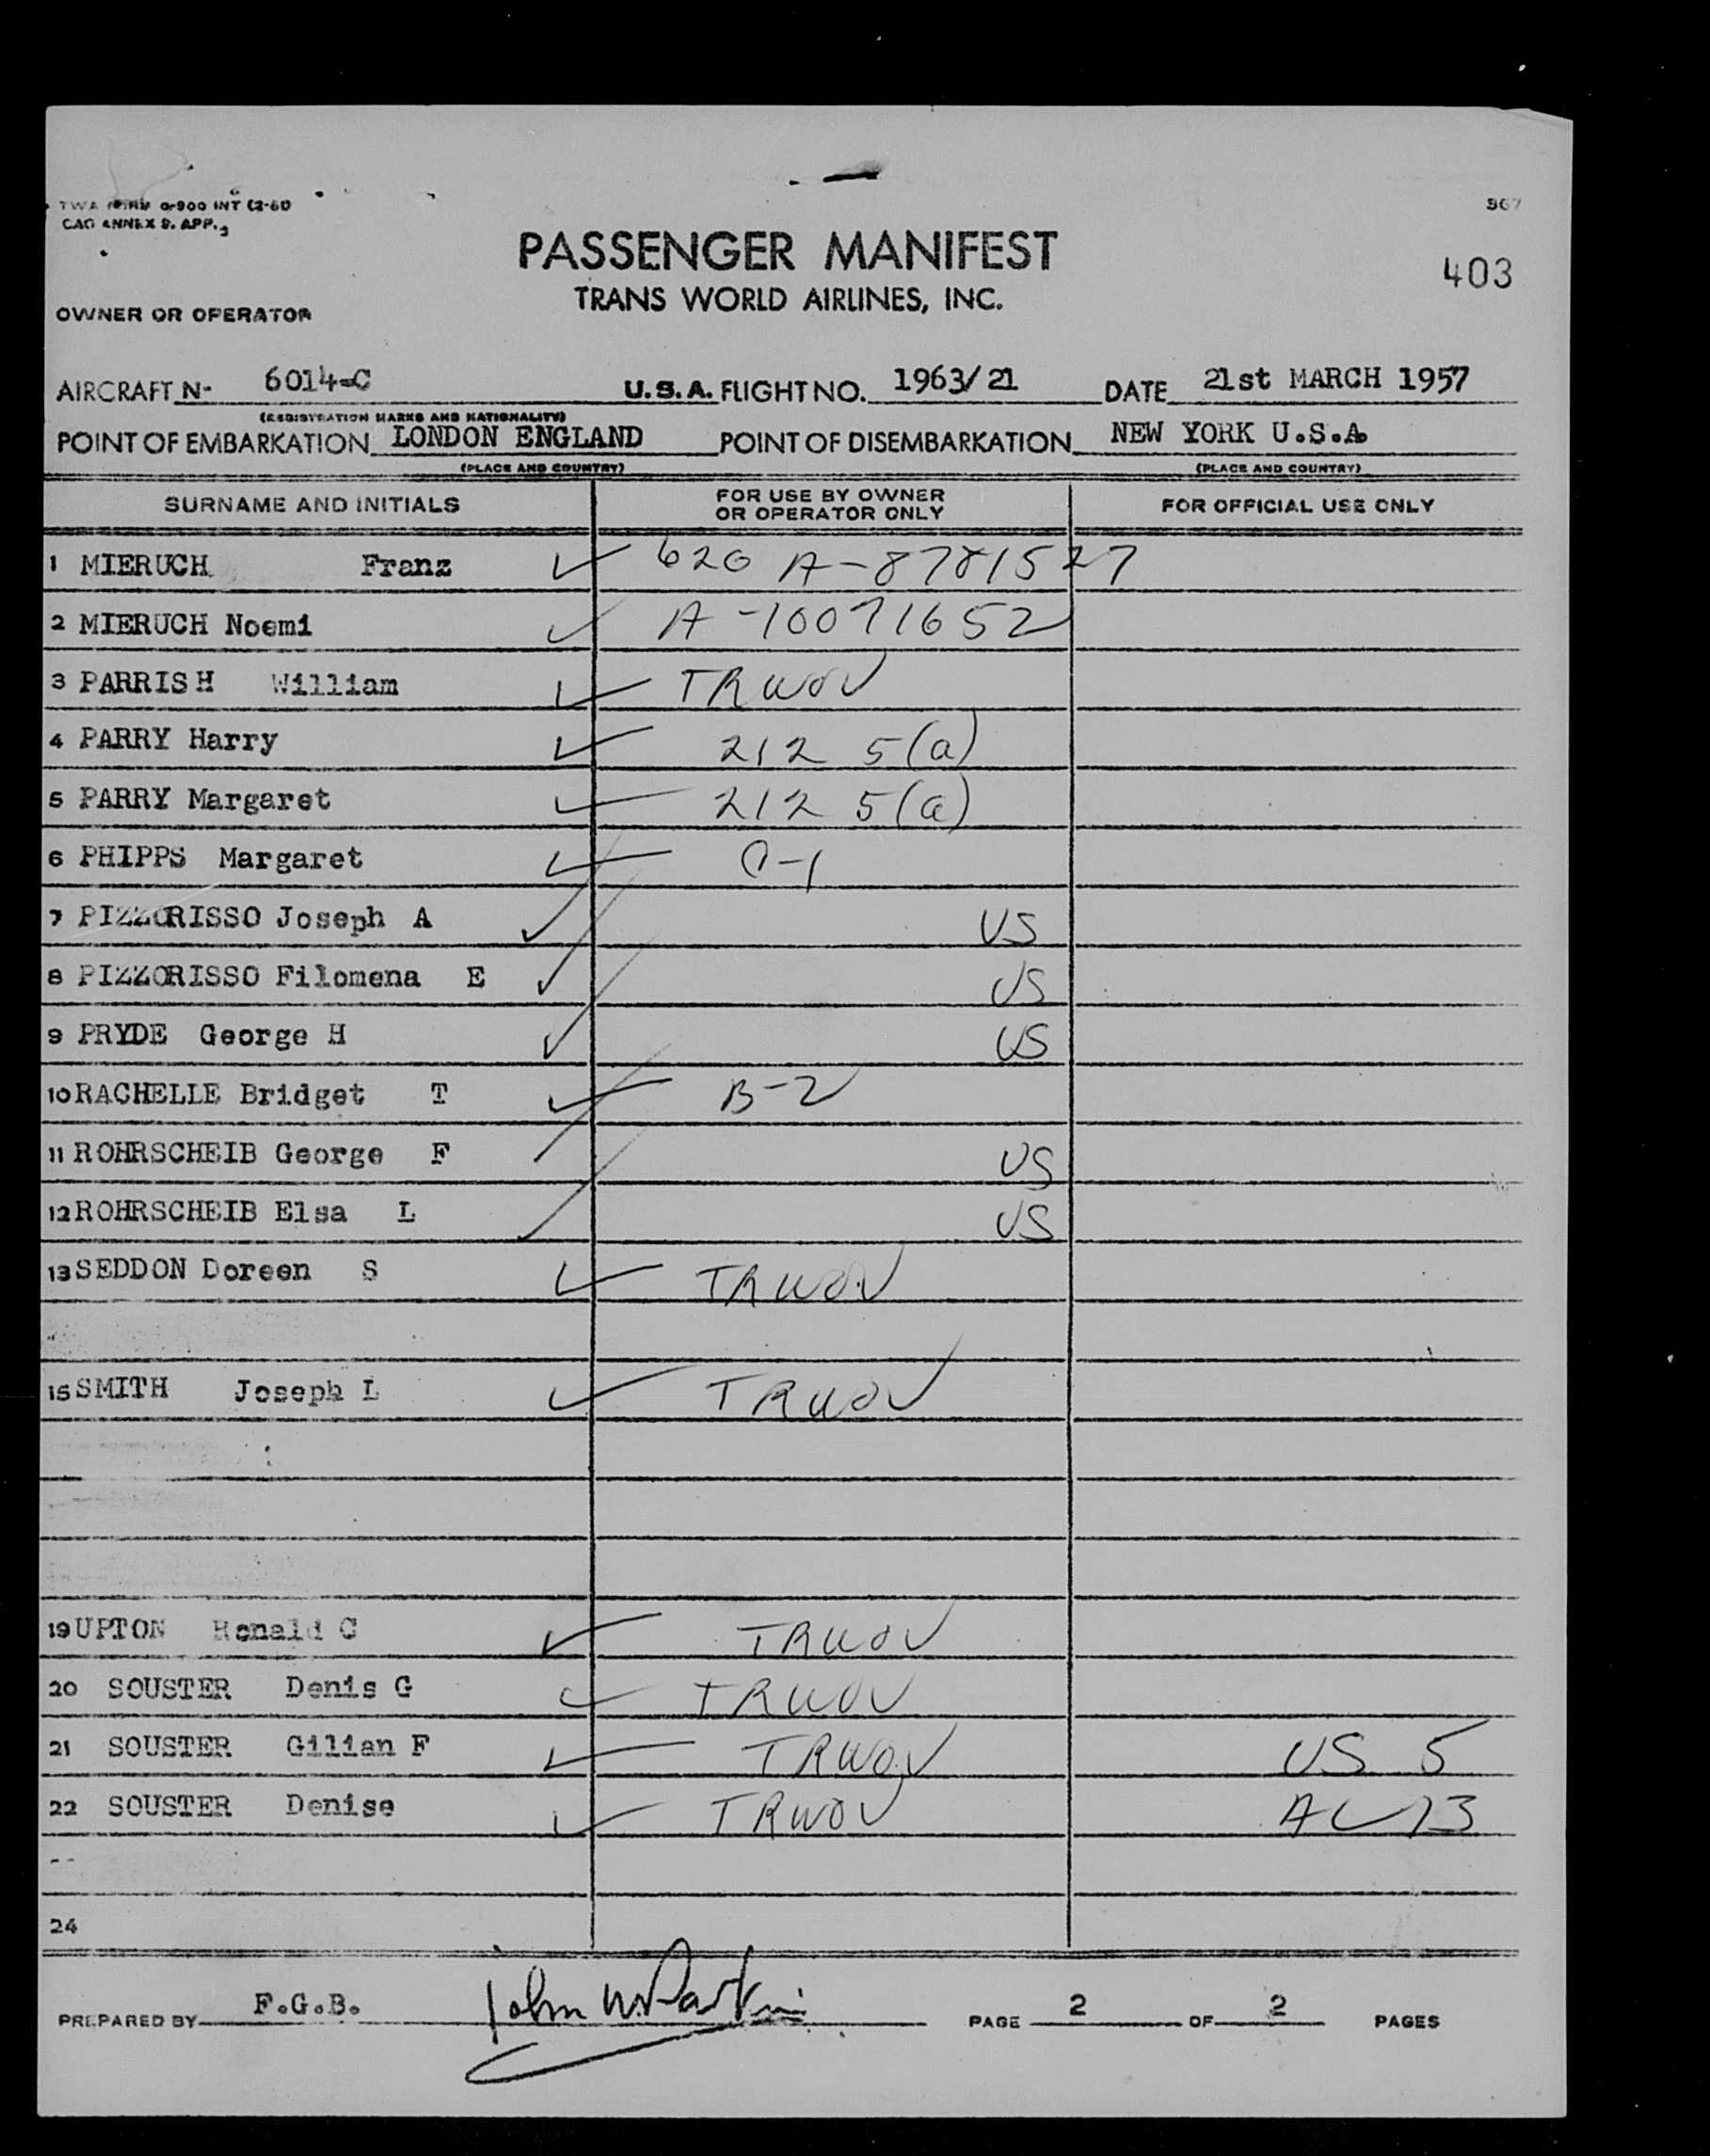 TWA FORM 0-900 INT (2-61)
CAO ANNEX 9. APP. 3
967
PASSENGER MANIFEST
403
TRANS WORLD AIRLINES, INC.
OWNER OR OPERATOR
AIRCRAFT Nº 6014-C U.S.A. FLIGHT NO. 1963/21 DATE 21st MARCH 1957
(REGISTRATION MARKS AND NATIONALITY)
POINT OF EMBARKATION LONDON ENGLAND POINT OF DISEMBARKATION NEW YORK U.S.A.
(PLACE AND COUNTRY) (PLACE AND COUNTRY)
SURNAME AND INITIALS FOR USE BY OWNER OR OPERATOR ONLY FOR OFFICIAL USE ONLY
1 MIERUCH Franz ✓ 620 A-8781527
2 MIERUCH Noemi ✓ A-10071652
3 PARRISH William ✓ TRWOV
4 PARRY Harry ✓ 212 5(a)
5 PARRY Margaret ✓ 212 5(a)
6 PHIPPS Margaret ✓
7 PIZZORISSO Joseph A ✓ US
8 PIZZORISSO Filomena E ✓ US
9 PRYDE George H ✓ US
10 RACHELLE Bridget T ✓ B-2
11 ROHRSCHEIB George F US
12 ROHRSCHEIB Elsa L US
13 SEDDON Doreen S ✓ TRWOV
15 SMITH Joseph L ✓ TRWOV
19 UPTON Ronald C ✓ TRWOV
20 SOUSTER Denis G ✓ TRWOV
21 SOUSTER Gilian F ✓ TRWOV US 5
22 SOUSTER Denise ✓ TRWOV AL 13
24
PREPARED BY F.G.B. John PAGE 2 OF 2 PAGES